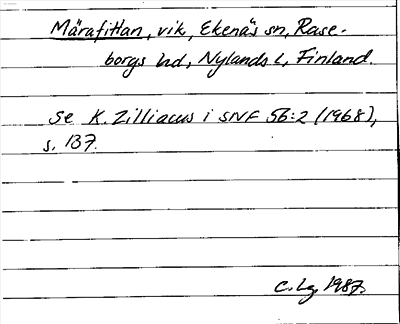 Märafittan, vik, Ekenäs sn, Rase-
borgs hd, Nylands l, Finland.
Se K. Zilliacus i SNF 56:2 (1968),
s. 137.
C. Lg. 1987.